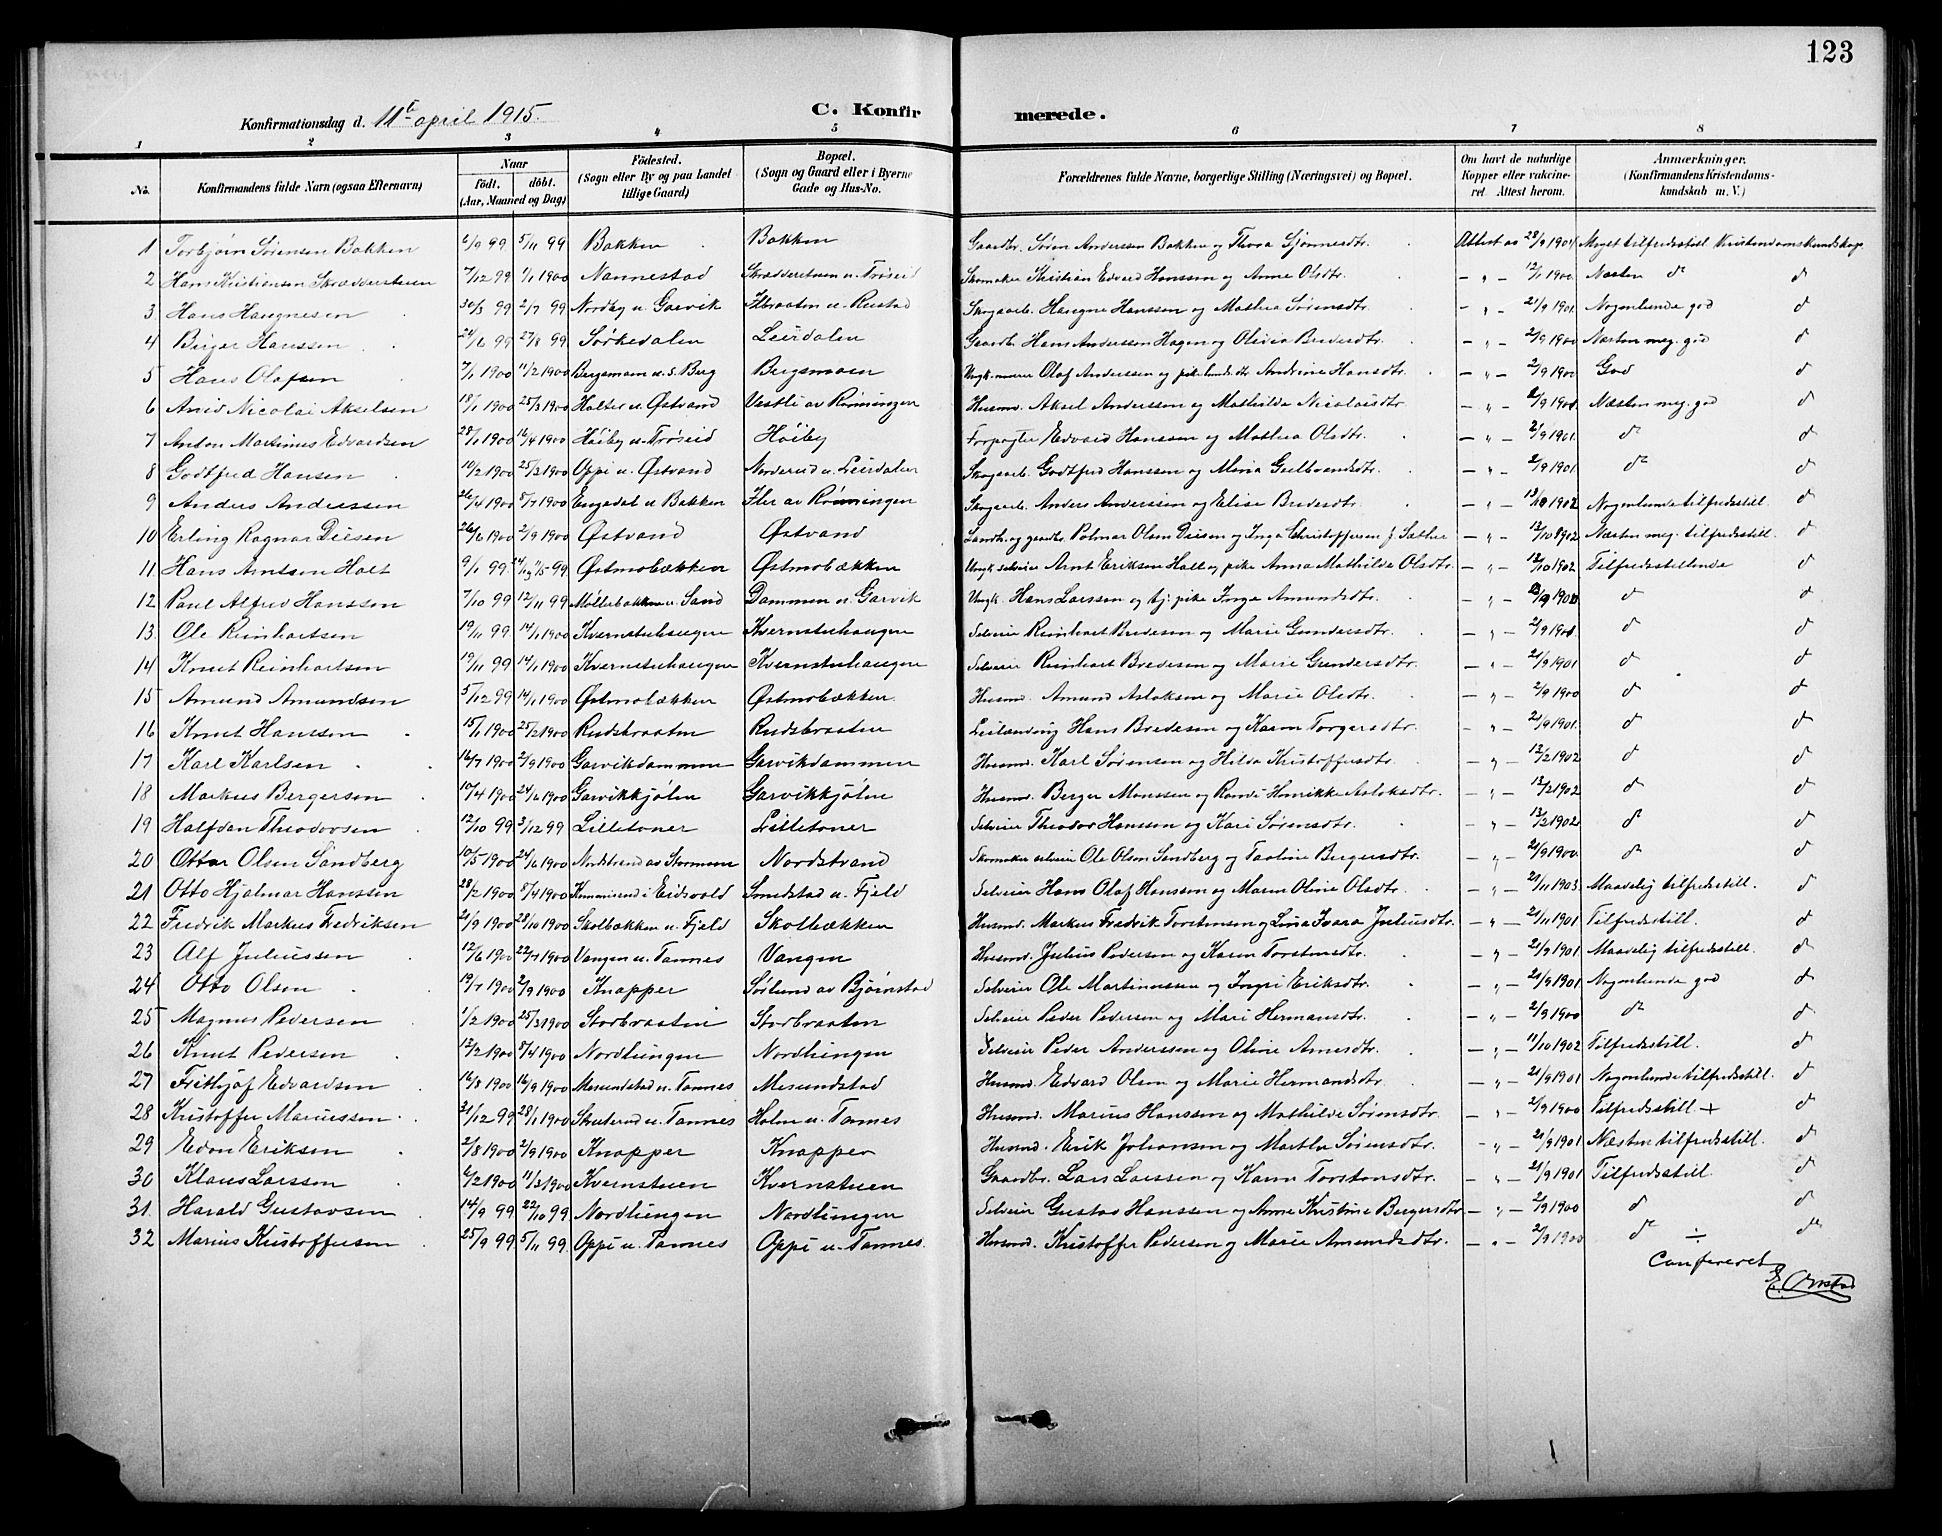 123
Konfirmationsdag d. 11te april 1915. C. Konfirmerede.
1 2 3 4 5 6 7 8
No. Konfirmandens fulde Navn (ogsaa Efternavn) Naar født. døbt. (Aar, Maaned og Dag) Fødested. (Sogn eller By og paa Landet tillige Gaard) Bopæl. (Sogn og Gaard eller i Byerne Gade og Hus-No. Forældrenes fulde Navne, borgerlige Stilling (Næringsvei) og Bopæl. Om havt de naturlige Kopper eller vaccineret Attest herom. Anmærkninger. (Konfirmandens Kristendomskundskab m. V.)
1 Torbjørn Sørensen Bakken 6/9 99 5/11 99 Bakken Bakken Gaardbr. Søren Anderssen Bakken og Thora Attest av 28/9 1901 Meget tilfredsstill Kristendomskundskap
2 Hans Kristiansen Skrædderstuen 7/12 99 1/1 1900 Nannestad Skrædderstuen u. Trøseid Skomaker Kristian Edvard Hanssen og Anne Olsdtr. – " – 12/1 1900 Næsten do do
3 Hans Haugnesen 30/3 99 2/7 99 Nordby u. Garvik Ilbraaten u. Rustad Skogsarb. Haugne Hanssen og Mathea Sørensdtr. – " – 21/9 1901 Nogenlunde god do
4 Birger Hanssen 24/6 99 27/8 99 Sørkedalen Leirdalen Gaardb. Hans Anderssen Hagen og Olivia Bredesdtr. – " – 2/9 1900 Næsten meg. god do
5 Hans Olafsen 7/1 1900 11/2 1900 Bergsmoen u. s. Berg Bergsmoen Ungk. murer Olaf Anderssen og pike Andrine Hansdtr. – " – 2/9 1900 God do
6 Arvid Nicolai Akselsen 18/1 1900 25/3 1900 Holter u. Østvand Vestli av Rømingen Husmd. Aksel Anderssen og Mathilde Nicolaisdtr. – " – 2/9 1901 Næsten meg. god do
7 Anton Martinius Edvardsen 28/1 1900 16/4 1900 Høiby u. Trøseid Høiby Forpagter Edvard Hanssen og Mathea Olsdtr. – " – 2/9 1901 do do
8 Godtfred Hansen 10/2 1900 25/3 1900 Oppi u. Østvand Norderud u. Leirdalen Skogsarb. Godtfred Hanssen og Maria Gulbrandsdtr. – " – 2/9 1901 do do
9 Anders Anderssen 26/4 1900 8/7 1900 Engedal u Bakken Iler av Rømingen Skogsarb. Anders Anderssen og Elise Bredesdtr. – " – 13/10 1902 Nogenlunde tilfredsstill. do
10 Erling Ragnar Diesen 26/6 1900 2/9 1900 Østvand Østvand Landh. og gaardbr. Polmar Olsen Diesen og Inga Christoffersen f. Sæther – " – 13/10 1902 Næsten meg. tilfredsstill. do
11 Hans Arntsen Holt 9/1 99 Østmobækken Østmobækken Ungk. selveier Arnt Eriksen Holt og pike Anna Mathilde Olsdtr. – " – 13/10 1902 Tilfredsstillende do
12 Paul Alfred Hanssen 7/10 99 12/11 99 Møllerbakken u. Sand Dammen u. Garvik Ungk. Hans Larssen og tj. pike Inga Amundsdtr. – " – do do
13. Ole Reinhartsen 19/11 99 14/1 1900 Kvernstuhaugen Kvernstuhaugen Selveier Reinhart Bredesen og Marie Gundersdtr. – " – 2/9 1901 do do
14 Knut Reinhartsen 19/11 99 14/1 1900 Kvernstuhaugen Kvernstuhaugen Selveier Reinhart Bredesen og Marie Gundersdtr. – " – 21/9 1901 do do
15 Amund Amundsen 5/12 99 14/1 1900 Østmobækken Østmobækken. Husmd. Amund Aslaksen og Marie Olsdtr. – " – 2/9 1900 do do
16 Knut Hanssen 15/1 1900 25/2 1900 Rudsbraaten Rudsbraaten Leilænding Hans Bredesen og Karen Torgersdtr. – " – 21/9 1901. do do
17 Karl Karlsen 16/7 1900 2/9 1900 Garvikdammen Garvikdammen Husmd. Karl Sørensen og Hilda Kristoffersdtr. – " – 12/2 1902 do do
18 Markus Bergersen 10/4 1900 24/6 1900 Garvikkjølen Garvikkjølen Husmd. Berger Monssen og Randi Henrikke Aslaksdtr. – " – 12/2 1902 do do
19 Halfdan Theodorsen 12/10 99 3/12 99 Lilletoner Lilletoner Selveier Theodor Hanssen og Kari Sørensdtr. – " – 12/2 1902 do do
20 Ottar Olsen Sandberg 10/5 1900 24/6 1900 Nordstrand av Stormoen Nordstrand Skomaker selveier Ole Olsen Sandberg og Pauline Bergersdtr. – " – 21/9 1900. do do
21 Otto Hjalmar Hanssen 28/2 1900 8/4 1900 i Eidsvold Smedstad u. Fjeld Selveier Hans Olaf Hanssen og Maren Oline Olsdtr. – " – 21/11 1903 Maadelig tilfredsstill. do
22 Fredrik Markus Fredriksen 21/9 1900 28/10 1900 Skolbækken u. Fjeld Skolbækken Husmd. Markus Fredrik Torstensen og Lina Juliusdtr. – " – 21/11 1901 Tilfredsstill. do
23 Alf Juliussen 12/6 1900 22/7 1900 Vangen u. Tannes Vangen Husmd. Julius Pedersen og Karen Torstensdtr. – " – 21/9 1901 Maadelig tilfredsstill. do
24 Otto Olsen 19/7 1900 2/9 1900 Knapper Sørlund av Bjørnstad Selveier Ole Martinussen og Ingri Eriksdtr. – " – 21/9 1901 Nogenlunde god do
25 Magnus Pedersen 1/2 1900 25/3 1900 Storbraaten Storbraaten Selveier Peder Pedersen og Mari Hermansdtr. – " – 2/9 1900 do do
26 Knut Pedersen 12/2 1900 8/4 1900 Nordlungen Nordlungen Selveier Peder Anderssen og Oline Arnesdtr. – " – 11/10 1902 Tilfredsstill. do
27 Frithjof Edvardsen 16/8 1900 16/9 1900 Mesundstad u. Tannes Mesundstad Husmd. Edvard Olsen og Marie Hermandsdtr. – " – 21/9 1901 Nogenlunde tilfredsstill. do
28 Kristoffer Mariussen 31/12 99 28/1 1900 Skruterud u. Tannes Holen u. Tannes Husmd. Marius Hanssen og Mathilde Sørensdtr. – " – 2/9 1900 Tilfredsstill + do
29 Edon Eriksen 2/8 1900 2/9 1900 Knapper Knapper Husmd. Erik Johansen og Marthe Sørensdtr. – " – 21/9 1901 Næsten tilfredsstill. do
30 Klaus Larssen 6/2 1900 11/3 1900 Kvernstuen Kvernstuen Gaardbr. Lars Larssen og Karen Torstensdtr. – " – 21/9 1901 Tilfredsstill do
31. Harald Gustavsen 14/9 99 22/10 99 Nordlungen Nordlungen Selveier Gustav Hanssen og Anne Kristine Bergersdtr – " – 2/9 1900 do do
32 Marius Kristoffersen 25/9 99 5/11 99 Oppi u. Tannes Oppi u. Tannes. Husmd. Kristoffer Pedersen og Marie Amundsdtr. – " – 2/9 1900 do ÷ do
Confereret